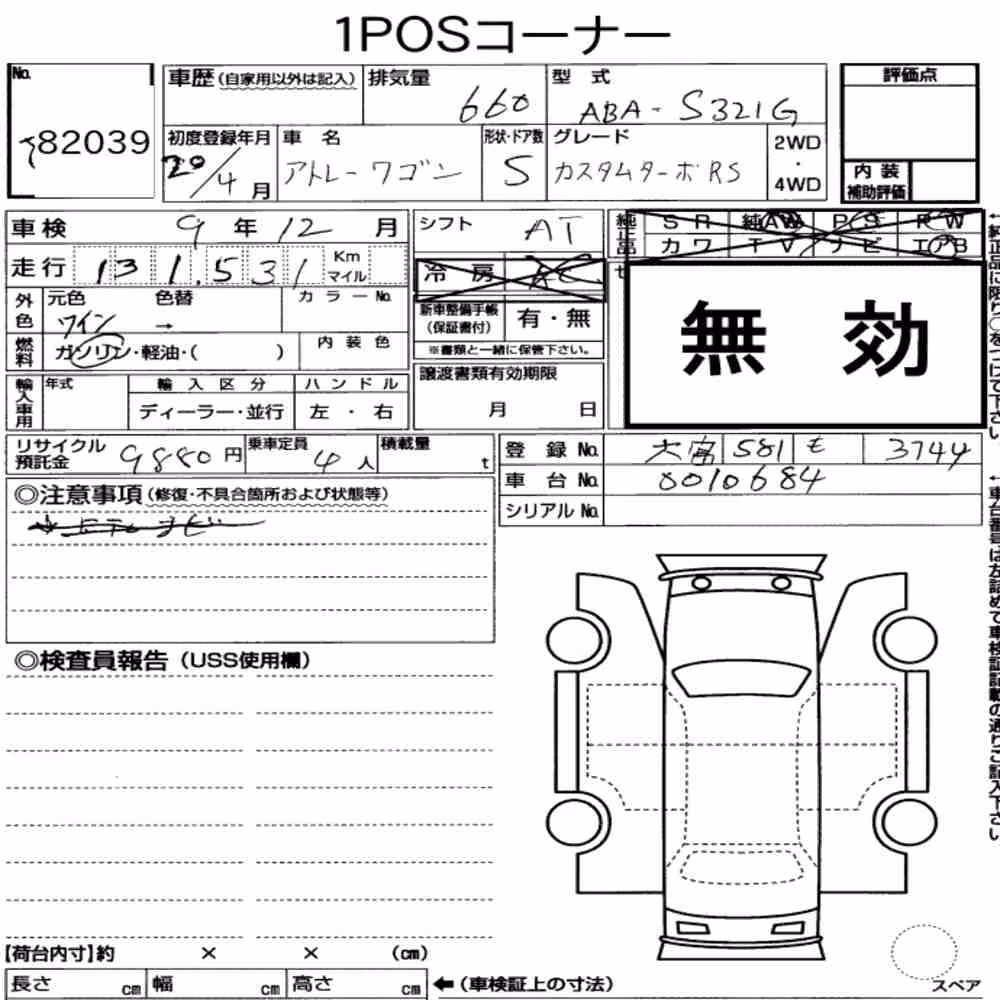 1POSコーナー
No.
82039
車歴(自家用以外は記入)
排気量
660
型 式
ABA-S321G
初度登録年月
20/4月
車 名
アトレーワゴン
形状・ドア数
5
グレード
カスタムターボRS
2WD
・
4WD
評価点
内 装
補助評価
車検 9 年 12 月
走行 131,531 Km
マイル
外色
元色
ワイン
色替
→
カラーNo.
燃料
ガソリン・軽油・( )
内 装 色
輸入車用
年式
輸 入 区 分
ディーラー・並行
ハ ン ド ル
左 ・ 右
シフト AT
冷 房
新車整備手帳
(保証書付)
有・無
※書類と一緒に保管下さい。
譲渡書類有効期限
月 日
純正品
S R 純AW P S P W
カ ワ T V ナ ビ エアB
無 効
←純正品に限り○をつけて下さい。
リサイクル
預託金
9880円
乗車定員
4人
積載量
t
登 録 No. 581 も 3744
車 台 No. 0010684
シリアル No.
◎注意事項(修復・不具合箇所および状態等)
←車台番号は左詰めで車検証記載の通りご記入下さい。
◎検査員報告(USS使用欄)
【荷台内寸】約 × × (cm)
長さ cm 幅 cm 高さ cm
←(車検証上の寸法)
スペア